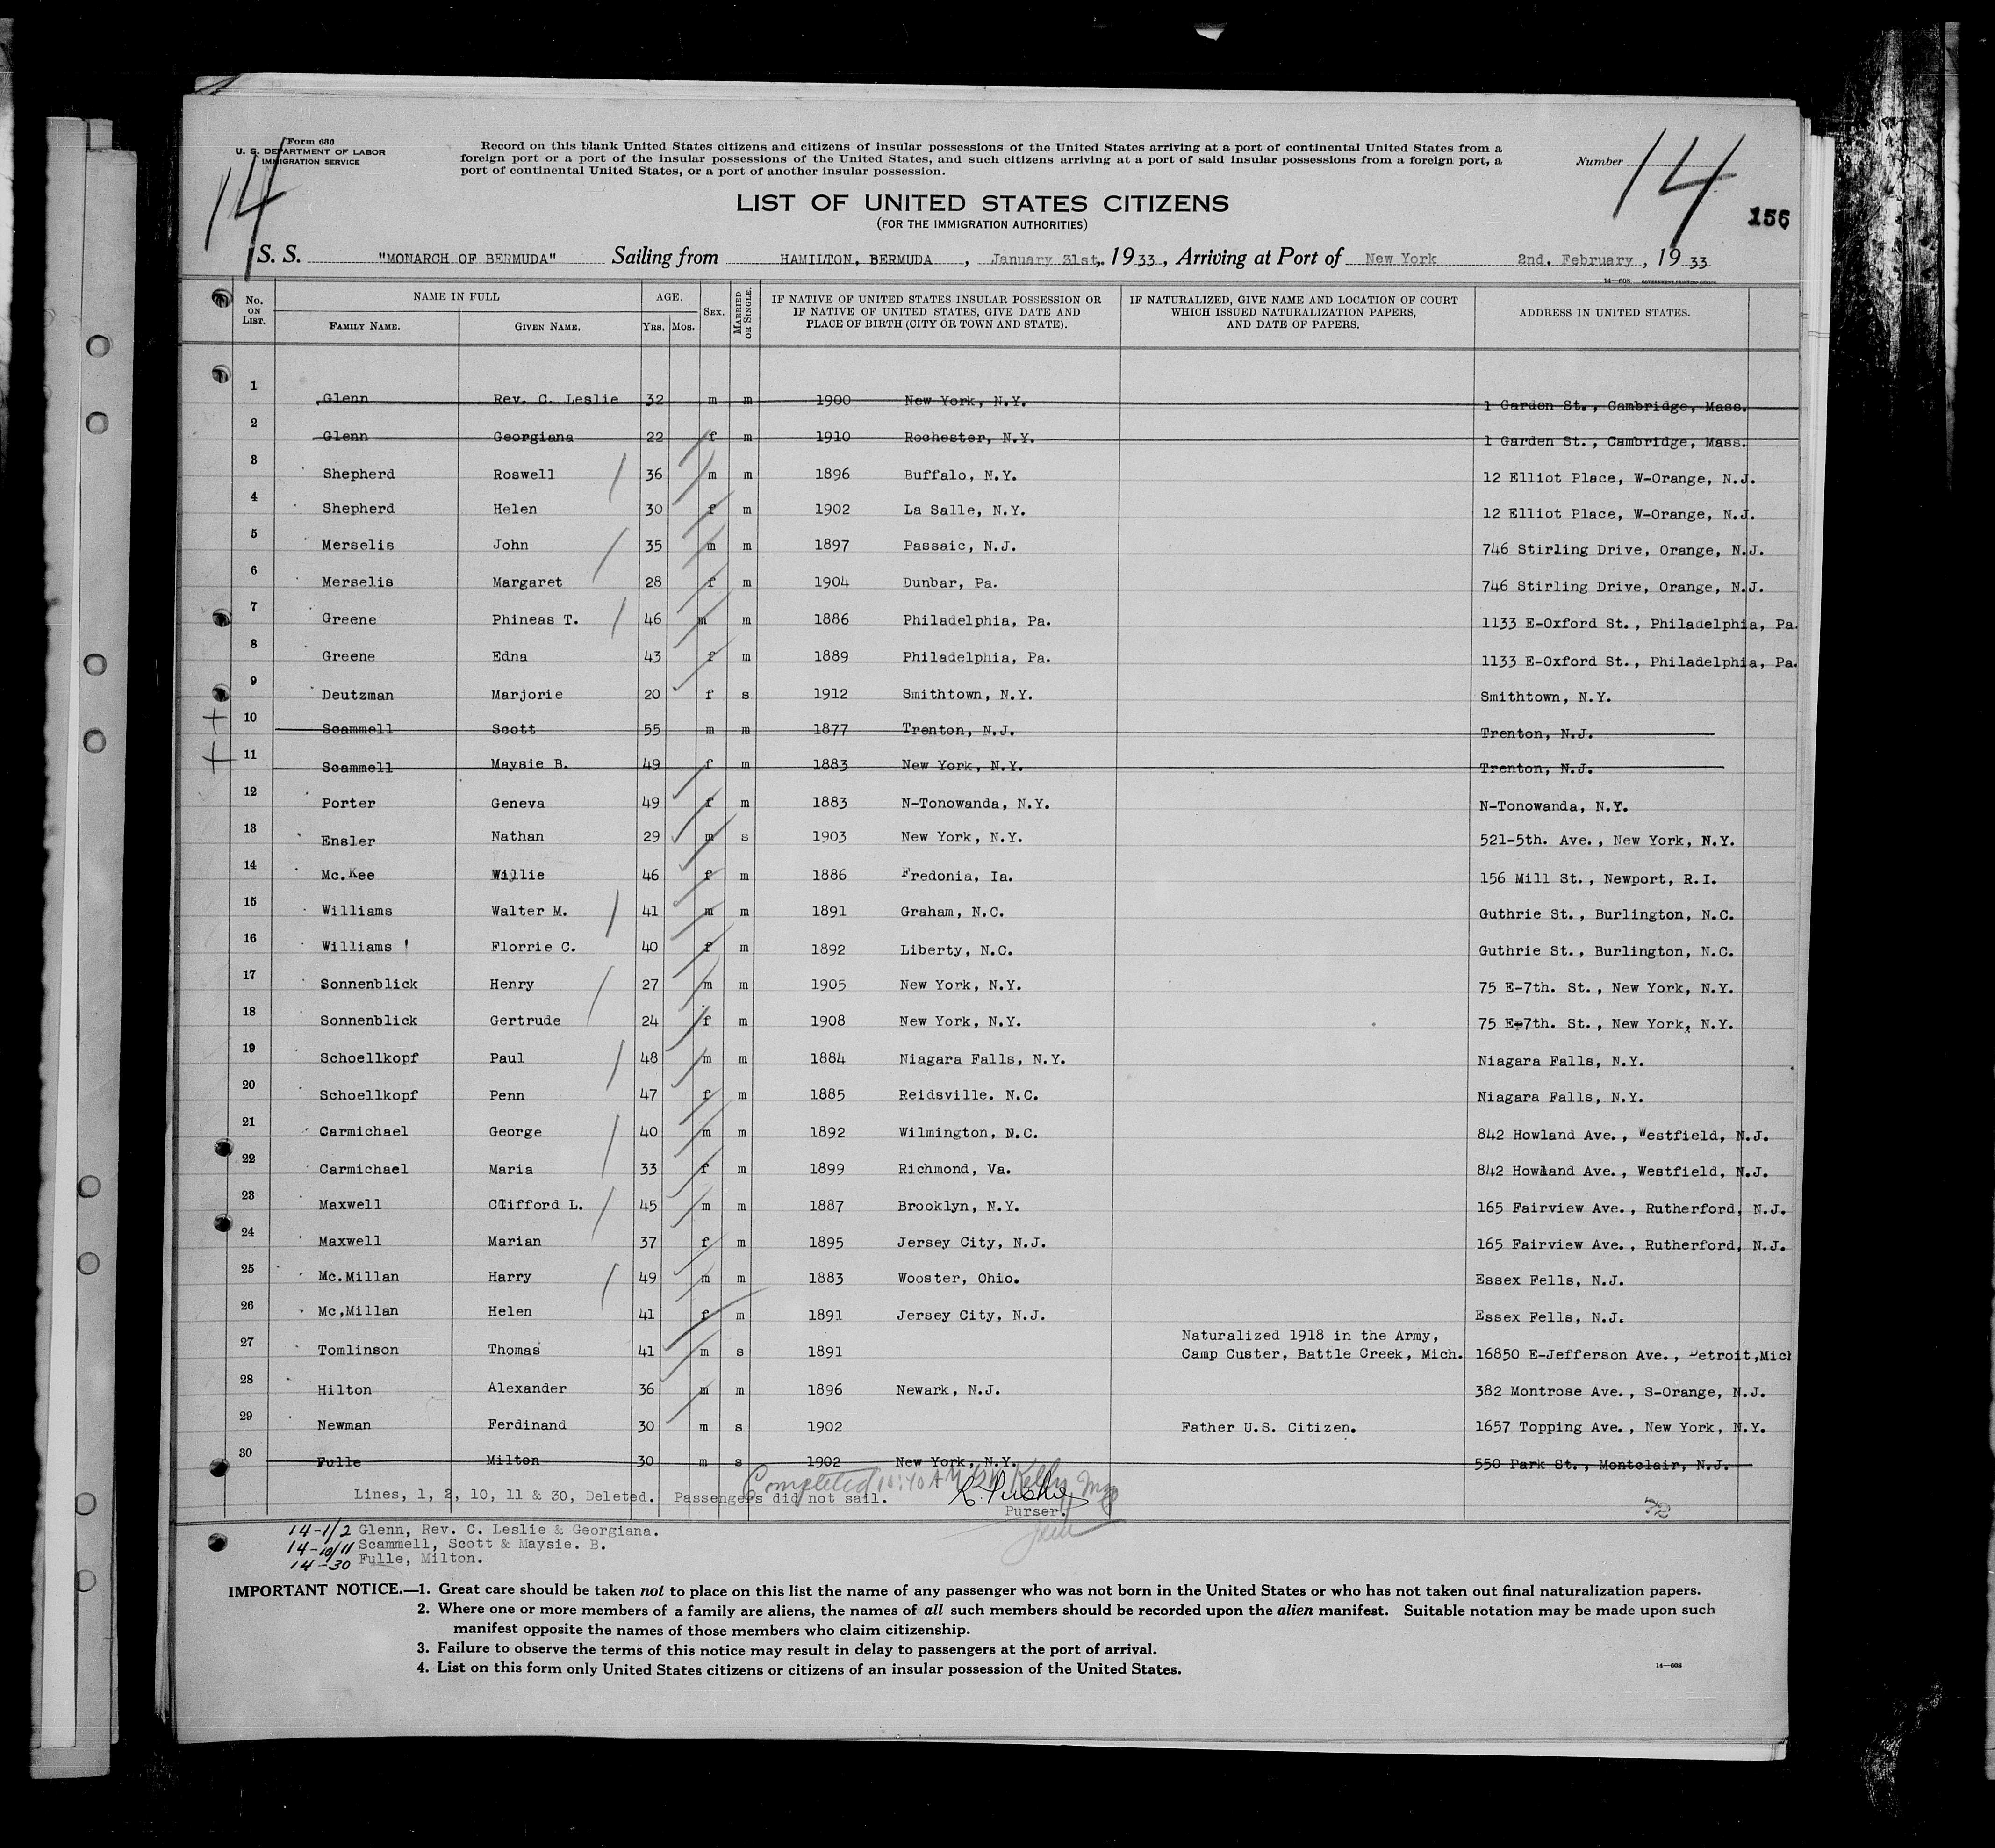 Form 630
U. S. DEPARTMENT OF LABOR
IMMIGRATION SERVICE
14
Record on this blank United States citizens and citizens of insular possessions of the United States arriving at a port of continental United States from a
foreign port or a port of the insular possessions of the United States, and such citizens arriving at a port of said insular possessions from a foreign port, a
port of continental United States, or a port of another insular possession.
Number 14
156
LIST OF UNITED STATES CITIZENS
(FOR THE IMMIGRATION AUTHORITIES)
S. S. "MONARCH OF BERMUDA" Sailing from HAMILTON, BERMUDA, January 31st, 1933, Arriving at Port of New York 2nd. February, 1933
14—608
No. ON LIST. NAME IN FULL FAMILY NAME. GIVEN NAME. AGE. YRS. MOS. SEX. MARRIED OR SINGLE. IF NATIVE OF UNITED STATES INSULAR POSSESSION OR IF NATIVE OF UNITED STATES, GIVE DATE AND PLACE OF BIRTH (CITY OR TOWN AND STATE). IF NATURALIZED, GIVE NAME AND LOCATION OF COURT WHICH ISSUED NATURALIZATION PAPERS, AND DATE OF PAPERS. ADDRESS IN UNITED STATES.
1 Glenn Rev. C. Leslie 32 m m 1900 New York, N.Y. 1 Garden St., Cambridge, Mass.
2 Glenn Georgiana 22 f m 1910 Rochester, N.Y. 1 Garden St., Cambridge, Mass.
3 Shepherd Roswell 36 m m 1896 Buffalo, N.Y. 12 Elliot Place, W-Orange, N.J.
4 Shepherd Helen 30 f m 1902 La Salle, N.Y. 12 Elliot Place, W-Orange, N.J.
5 Merselis John 35 m m 1897 Passaic, N.J. 746 Stirling Drive, Orange, N.J.
6 Merselis Margaret 28 f m 1904 Dunbar, Pa. 746 Stirling Drive, Orange, N.J.
7 Greene Phineas T. 46 m m 1886 Philadelphia, Pa. 1133 E-Oxford St., Philadelphia, Pa.
8 Greene Edna 43 f m 1889 Philadelphia, Pa. 1133 E-Oxford St., Philadelphia, Pa.
9 Deutzman Marjorie 20 f s 1912 Smithtown, N.Y. Smithtown, N.Y.
10 Scammell Scott 55 m m 1877 Trenton, N.J. Trenton, N.J.
11 Scammell Maysie B. 49 f m 1883 New York, N.Y. Trenton, N.J.
12 Porter Geneva 49 f m 1883 N-Tonowanda, N.Y. N-Tonowanda, N.Y.
13 Ensler Nathan 29 m s 1903 New York, N.Y. 521-5th. Ave., New York, N.Y.
14 Mc.Kee Willie 46 f m 1886 Fredonia, Ia. 156 Mill St., Newport, R.I.
15 Williams Walter M. 41 m m 1891 Graham, N.C. Guthrie St., Burlington, N.C.
16 Williams Florrie C. 40 f m 1892 Liberty, N.C. Guthrie St., Burlington, N.C.
17 Sonnenblick Henry 27 m m 1905 New York, N.Y. 75 E-7th. St., New York, N.Y.
18 Sonnenblick Gertrude 24 f m 1908 New York, N.Y. 75 E-7th. St., New York, N.Y.
19 Schoellkopf Paul 48 m m 1884 Niagara Falls, N.Y. Niagara Falls, N.Y.
20 Schoellkopf Penn 47 f m 1885 Reidsville. N.C. Niagara Falls, N.Y.
21 Carmichael George 40 m m 1892 Wilmington, N.C. 842 Howland Ave., Westfield, N.J.
22 Carmichael Maria 33 f m 1899 Richmond, Va. 842 Howland Ave., Westfield, N.J.
23 Maxwell Clifford L. 45 m m 1887 Brooklyn, N.Y. 165 Fairview Ave., Rutherford, N.J.
24 Maxwell Marian 37 f m 1895 Jersey City, N.J. 165 Fairview Ave., Rutherford, N.J.
25 Mc.Millan Harry 49 m m 1883 Wooster, Ohio. Essex Fells, N.J.
26 Mc,Millan Helen 41 f m 1891 Jersey City, N.J. Essex Fells, N.J.
Naturalized 1918 in the Army,
27 Tomlinson Thomas 41 m s 1891 Camp Custer, Battle Creek, Mich. 16850 E-Jefferson Ave., Detroit,Mich
28 Hilton Alexander 36 m m 1896 Newark, N.J. 382 Montrose Ave., S-Orange, N.J.
29 Newman Ferdinand 30 m s 1902 Father U.S. Citizen. 1657 Topping Ave., New York, N.Y.
30 Fulle Milton 30 m s 1902 New York, N.Y. 550 Park St., Montclair, N.J.
Completed 10:40 AM
Lines, 1, 2, 10, 11 & 30, Deleted. Passengers did not sail.
Purser.
14-1/2 Glenn, Rev. C. Leslie & Georgiana.
14-10/11 Scammell, Scott & Maysie. B.
14-30 Fulle, Milton.
IMPORTANT NOTICE.—1. Great care should be taken not to place on this list the name of any passenger who was not born in the United States or who has not taken out final naturalization papers.
2. Where one or more members of a family are aliens, the names of all such members should be recorded upon the alien manifest. Suitable notation may be made upon such
manifest opposite the names of those members who claim citizenship.
3. Failure to observe the terms of this notice may result in delay to passengers at the port of arrival.
4. List on this form only United States citizens or citizens of an insular possession of the United States.
14—608